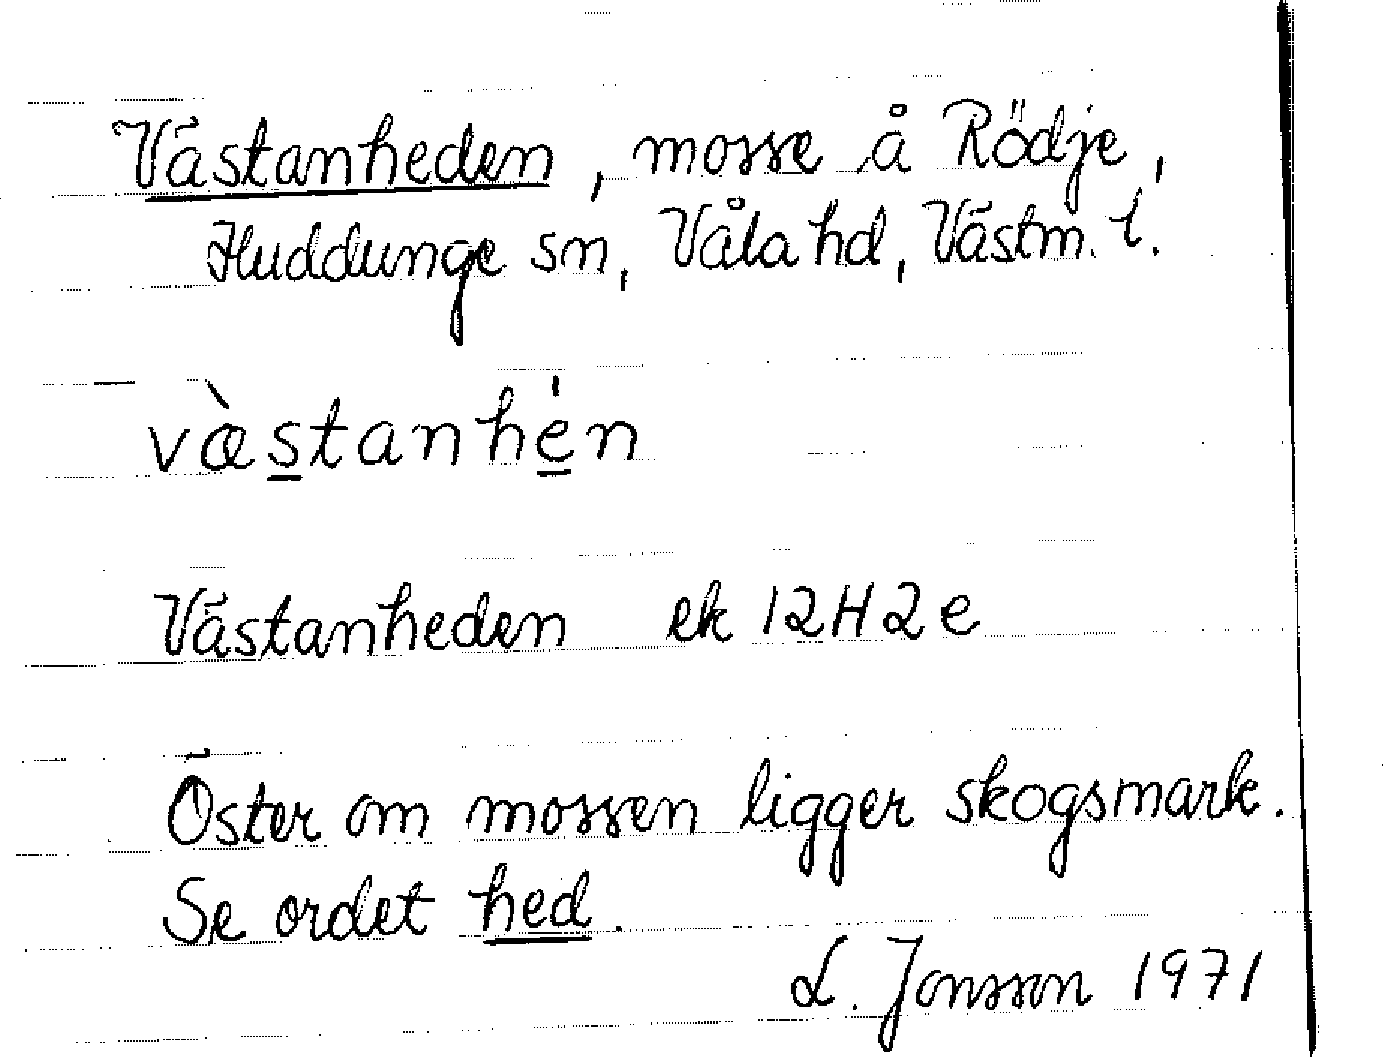 Västanheden, mosse å Rödje,
Huddunge sn, Våla hd, Västm. l.
væ̀stanhé̱n
Västanheden ek 12H2e
Öster om mossen ligger skogsmark.
Se ordet hed.
L. Jonsson 1971